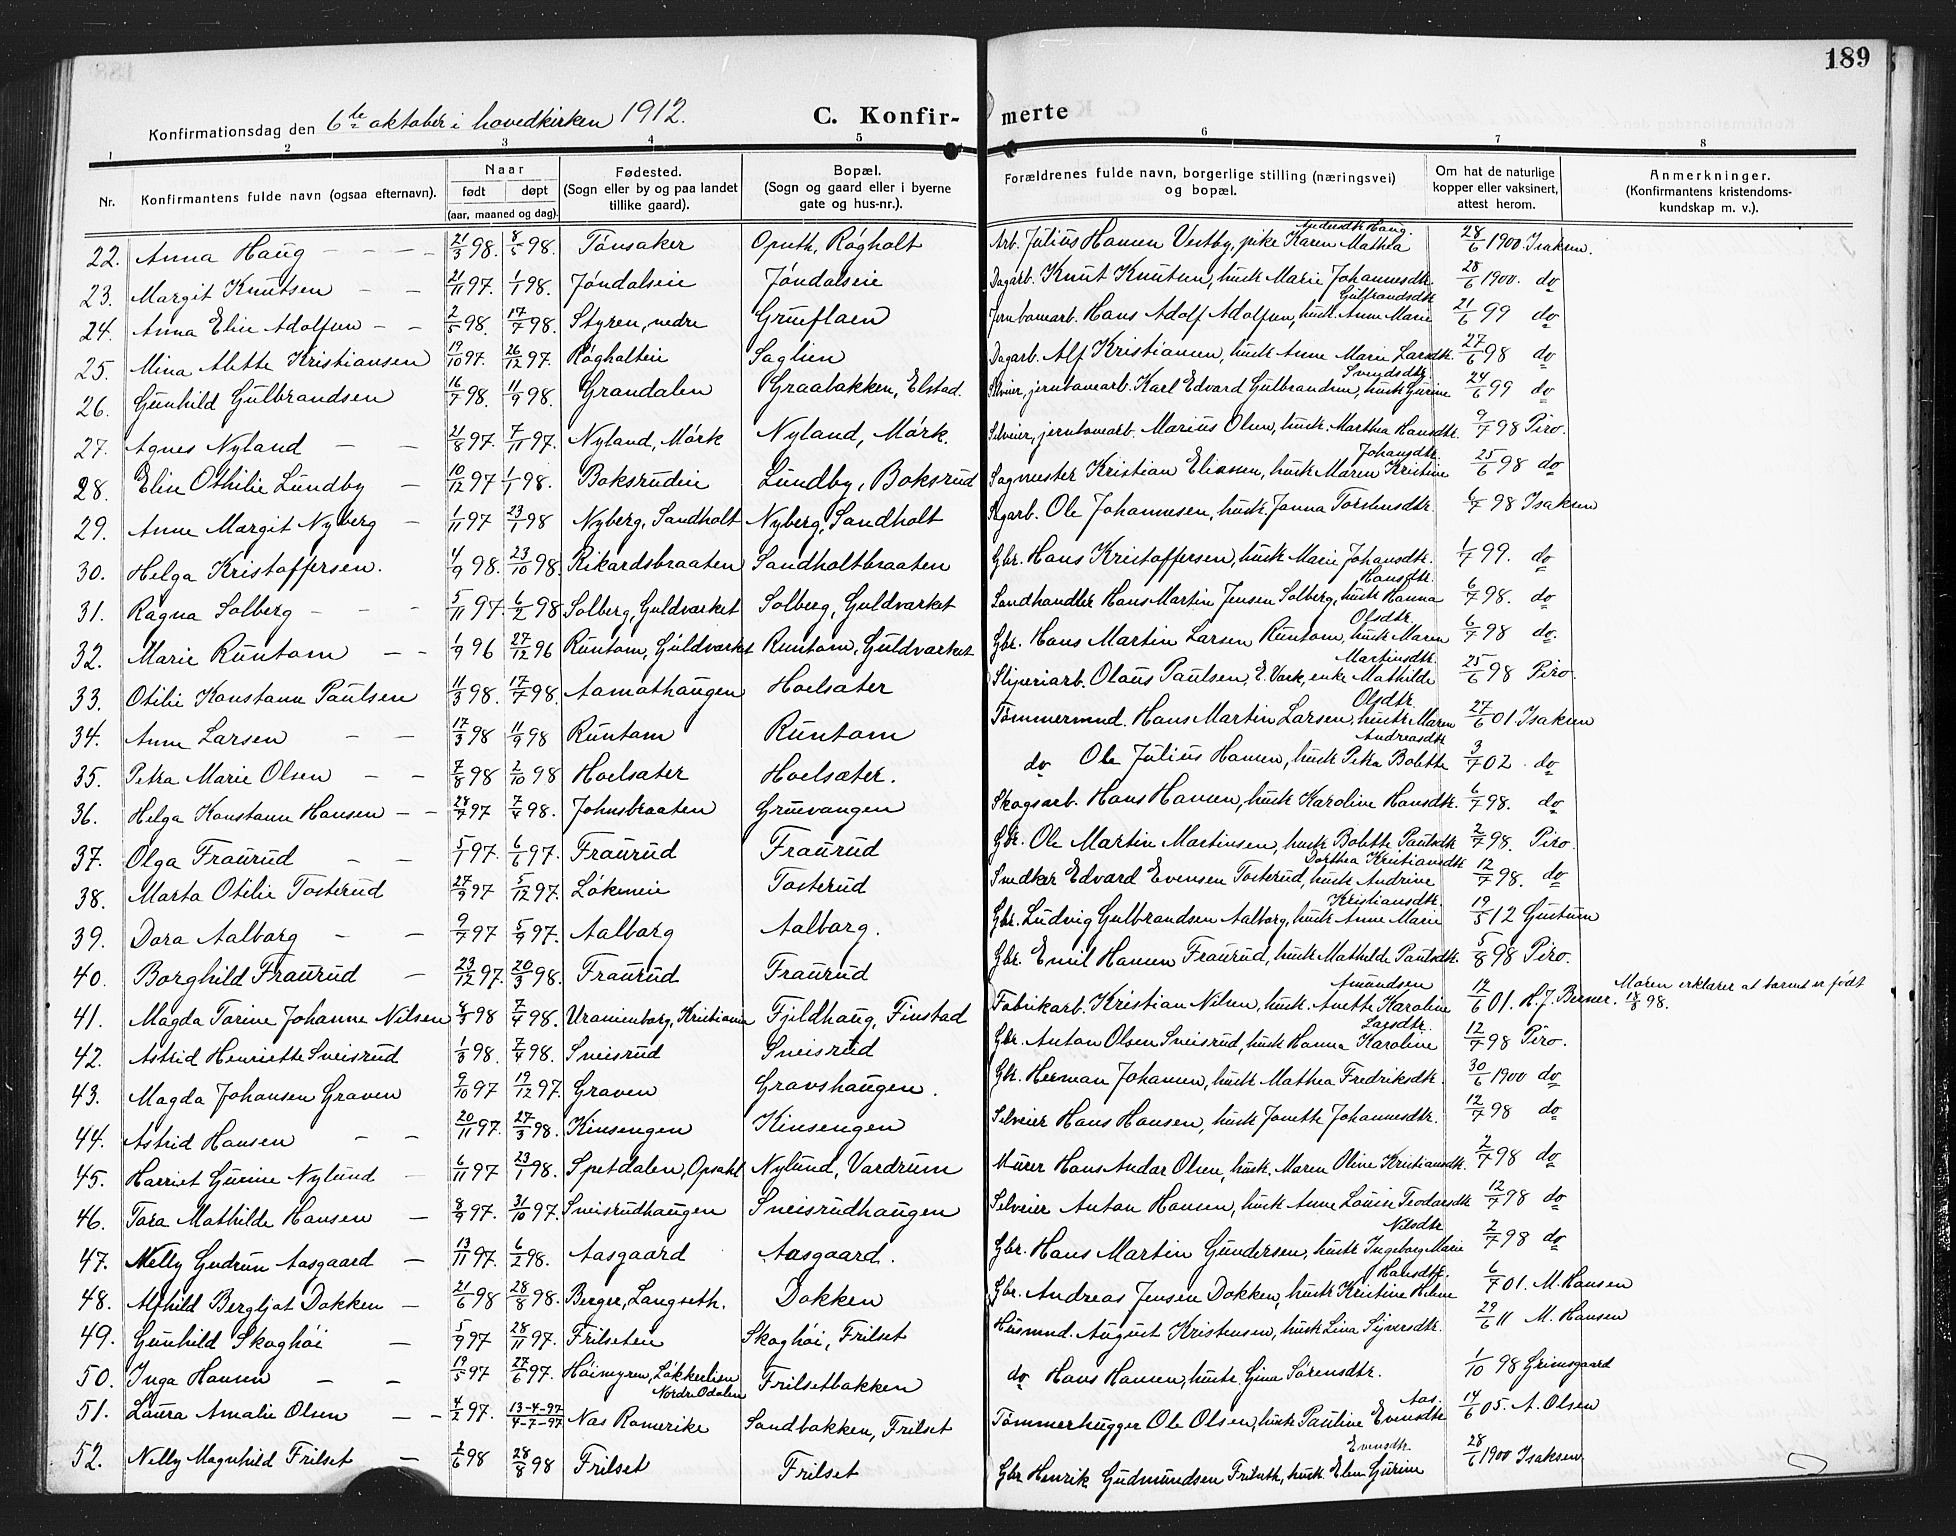 189
Konfirmationsdag den 6te oktober i hovedkirken 1912. C. Konfirmerte
1 2 3 4 5 6 7 8
Nr. Konfirmantens fulde navn (ogsaa efternavn). Naar født døpt (aar, maaned og dag). Fødested. (Sogn eller by og paa landet tillike gaard). Bopæl. (Sogn og gaard eller i byerne gate og hus-nr.). Forældrenes fulde navn, borgerlige stilling (næringsvei) og bopæl. Om hat de naturlige kopper eller vaksinert, attest herom. Anmerkninger. (Konfirmantens kristendomskundskap m. v.).
22. Anna Haug - - - 21/3 98. 8/5 98. Tønsaker Røgholt Arb. Julius Hansen Vestby, pike Karen Mathea Andersdtr Haug. 28/6 1900. Isaksen.
23. Margit Knutsen - - 21/11 97. 1/1 98. Jøndalseie Jøndalseie Dagarb. Knut Knutsen, hustr. Marie Johannesdtr. 28/6 1900. do
24. Anna Elise Adolfsen - - 2/5 98. 17/7 98. Styren, nedre Grueflaen Jernbanearb. Hans Adolf Adolfsen, hustr. Anne Marie Gulbrandsdtr 21/6 99 do
25. Mina Alette Kristiansen 19/10 97. 26/12 97. Røgholteie Saglien Dagarb. Alf Kristiansen, hustr. Anne Marie Larsdtr. 27/6 98 do
26. Gunhild Gulbrandsen 16/7 98. 11/9 98. Grandalen Graabakken, Elstad. Selveier, jernbanearb. Karl Edvard Gulbrandsen, hustr. Gurine Svendsdtr 24/6 99 do
27. Agnes Nyland - - 21/8 97. 7/11 97. Nyland, Mørk Nyland, Mørk. Selveier, jernbanearb. Marius Olsen, hustr. Marthea Hansdtr. 9/7 98 Piro.
28. Elise Othilie Lundby - 10/12 97 1/1 98. Boksrudeie Lundby, Boksrud Sagmester Kristian Eliasen, hustr. Maren Kristine Johansdtr. 25/6 98 do
29. Anne Margit Nyberg - 1/11 97 23/1 98 Nyberg, Sandholt Nyberg, Sandholt Sagarb. Ole Johannesen, hustr. Janna Torstensdtr. 6/7 98 Isaksen
30. Helga Kristoffersen. 4/9 98. 23/10 98. Rikardsbraaten Sandholtbraaten Gbr. Hans Kristoffersen, hustr. Marie Johansdtr. 1/7 99. do
31. Ragna Solberg - - - 5/11 97. 6/2 98 Solberg, Guldvarket Solberg, Guldvarket Landhandler Hans Martin Jensen Solberg, hustr. Hanna Hansdtr. 6/7 98. do
32. Marie Runtom - - 1/9 96 27/12 96 Runtom, Guldvarket Runtom, Guldvarket Gbr. Hans Martin Larsen Runtom, hustr. Maren Olsdtr. 6/7 98 do.
33. Otilie Konstanse Paulsen 11/3 98. 17/7 98. Aamothaugen Hoelsæter Sliperiarb. Olaus Paulsen, E. Værk, enke Mathilde Martinsdtr. 25/6 98 Piro.
34. Anne Larsen - - 17/3 98 11/9 98 Runtom Runtom Tømmermnd. Hans Martin Larsen, hustr. Maren Olsdtr. 27/6 01. Isaksen
35. Petra Marie Olsen - - 7/8 98 2/10 98 Hoelsæter Hoelsæter. do Ole Julius Hansen, hustr. Petra Bolette Andreasdtr 3/7 02. do
36. Helga Konstanse Hansen - - 97 7/4 98. Johnsbraaten Gruvangen Skogsarb. Hans Hansen, hustr. Karoline Hansdtr. 6/7 98. do
37. Olga Fraurud - - 5/1 97. 6/6 97. Fraurud Fraurud Gbr. Ole Martin Martinsen, hustr. Bolette Paulsdtr 2/7 98. Piro.
38. Marta Otilie Tosterud 27/9 97 5/12 97. Løkmeie Tosterud Snedker Edvard Evensen Tosterud, hustr. Andrine Dorthea Kristiansdtr 12/7 98. do
39. Dora Aalborg - - 9/7 97 5/9 97. Aalborg Aalborg. Gbr. Ludvig Gulbrandsen Aalborg, hustr. Anne Marie Kristiansdtr. 19/5 12 Gustum
40. Borghild Fraurud - 23/12 97. 20/3 98. Fraurud Fraurud Gbr. Emil Hansen Fraurud, hustr. Mathilde Paulsdtr. 5/8 98 Piro.
41. Magda Torine Johanne Nilsen 8/3 98 7/4 98. Uranienborg, Kristiania Fjeldhaug, Finstad Fabrikarb. Kristian Nilsen, hustr. Anette Karoline Amundsen 12/6 01. H. J. Berner. Moren erklærer at barnet er født 18/3 98.
42. Astrid Henriette Sneisrud 1/3 98. 7/4 98. Sneisrud Sneisrud Gbr. Anton Olsen Sneisrud, hustr. Hanna Karoline Larsdtr. 12/7 98 Piro.
43. Magda Johansen Graven 9/10 97 19/12 97. Graven Gravshaugen. Gbr. Herman Johansen, hustr. Mathea Fredriksdtr. 30/6 1900 do
44. Astrid Hansen - - 20/11 97. 27/3 98. Kinsengen Kinsengen Selveier Hans Hansen, hustr. Jonette Johannesdtr. 12/7 98 do
45. Harriet Gurine Nylund - 6/11 97 23/1 98. Spetdalen, Opsahl Nylund, Vardrum Murer Hans Andar Olsen, hustr. Maren Oline Kristiansdtr. 2/7 98 do
46. Tora Mathilde Hansen - 8/9 97. 31/10 97. Sneisrudhaugen Sneisrudhaugen Selveier Anton Hansen, hustr. Anne Louise Teodorsdtr 12/7 98 do
47. Nelly Gudrun Aasgaard - 13/11 97. 6/2 98. Aasgaard Aasgaard. Gbr. Hans Martin Gundersen, hustr. Ingeborg Marie Nilsdtr 2/7 98 do
48. Alfhild Bergljot Dokken - 21/6 98 28/8 98. Berger, Langseth. Dokken Gbr. Andreas Jensen Dokken, hustr. Kristine Helene Hansdtr. 6/7 01. M. Hansen
49. Gunhild Skoghøi - 5/9 97 28/11 97. Frilseteie Skoghøi, Frilset Husmnd. August Kristensen, hustr. Lina Sijversdtr. 29/6 11 M. Hansen
50. Inga Hansen - - 19/5 97 27/6 97. Høimyren, Løkkerlien Frilsetbakken do Hans Hansen, hustr. Gina Sørensdtr. 1/10 98 Grimsgaard
51. Laura Amalie Olsen - - 4/2 97. 13-4-97 4-7-97 Næs Romerike Nordr. Odalen Sandbakken, Frilset Tømmerhugger Ole Olsen, hustr. Pauline Evensdtr Aas. 14/6 05. A. Olsen
52. Nelly Magnhild Frilset - 2/6 98 28/8 98 Frilset Frilset Gbr Henrik Gudmundsen Frilseth, hustr. Elen Gurine Evensdtr. 28/6 1900 Isaksen.